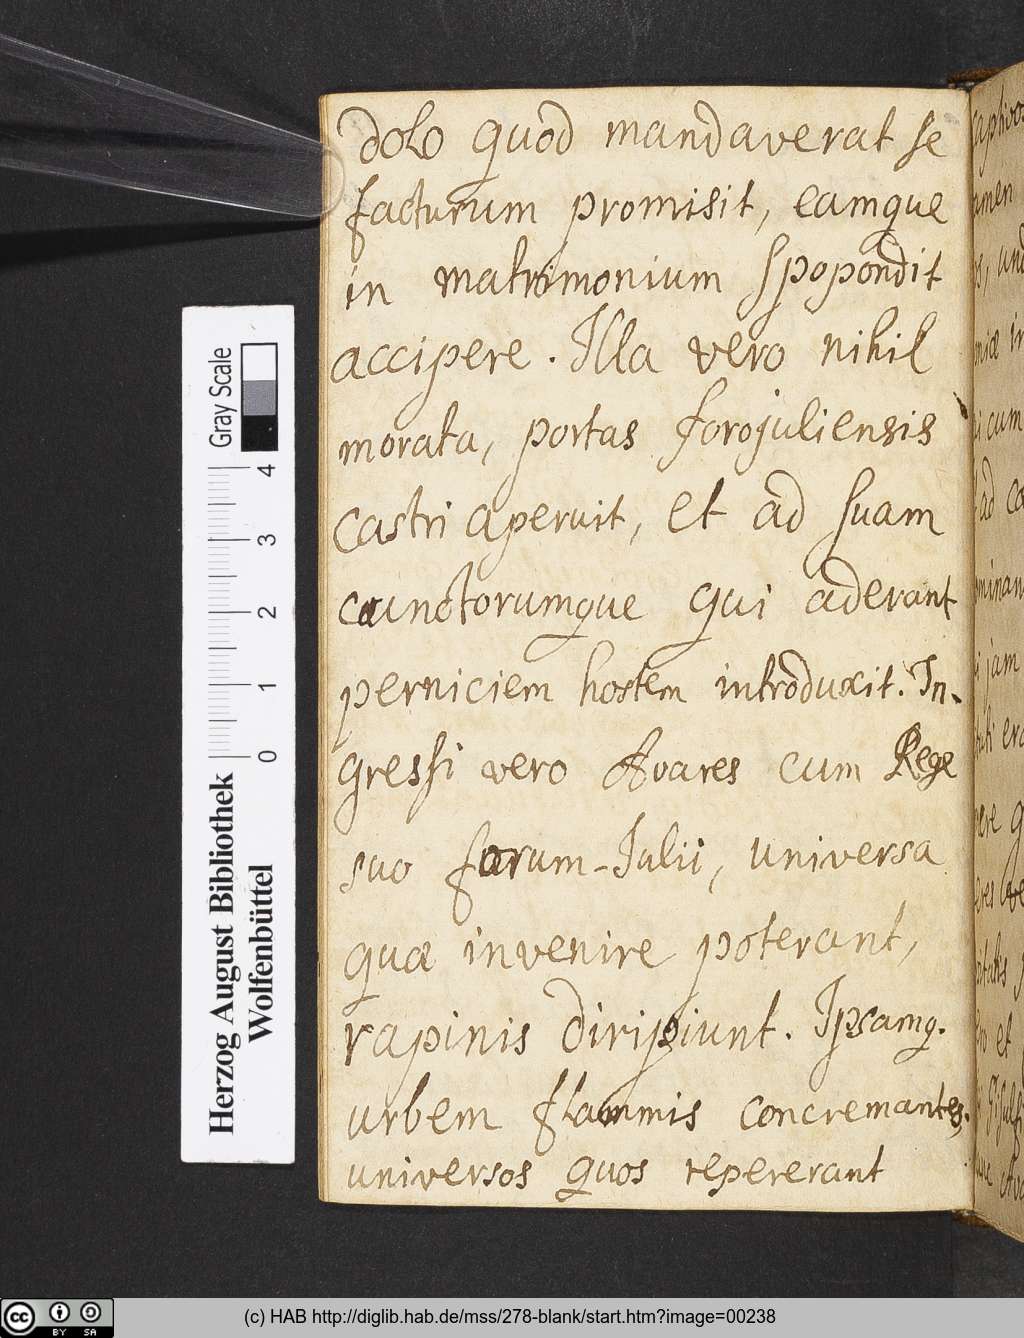 dolo quod mandaverat se
facturum promisit, eamque
in matrimonium spopondit
accipere. Illa vero nihil
morata, portas forojuliensis
castri aperuit, et ad suam
cunctorumque qui aderant
perniciem hostem introduxit. In-
gressi vero Avares cum Rege
suo forum-Julii, universa
quæ invenire poterant,
rapinis diripiunt. Ipsamq.
urbem flammis concremantes,
universos quos repererant
Gray Scale
0 1 2 3 4
Herzog August Bibliothek
Wolfenbüttel
cc BY SA
(c) HAB http://diglib.hab.de/mss/278-blank/start.htm?image=00238